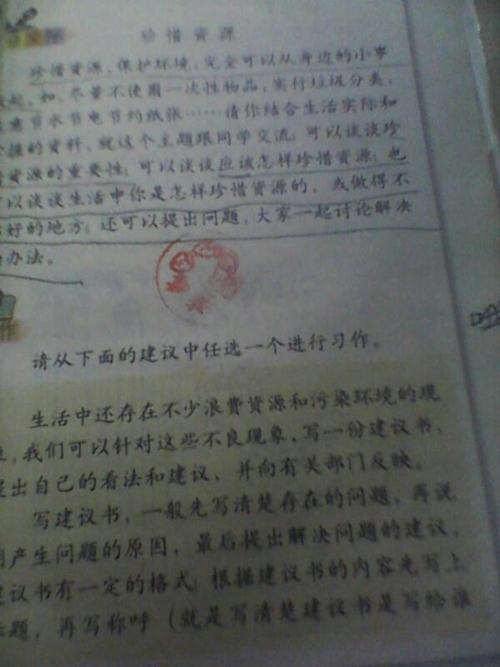 珍惜资源
珍惜资源、保护环境，完全可以从身边的小事
做起。如，尽量不使用一次性物品，实行垃圾分类，
意节水节电节约纸张……请你结合生活实际和
的资料，就这个主题跟同学交流：可以谈谈珍
资源的重要性；可以谈谈应该怎样珍惜资源；也
以谈谈生活中你是怎样珍惜资源的，或做得不
好的地方；还可以提出问题，大家一起讨论解决
办法。
请从下面的建议中任选一个进行习作。
生活中还存在不少浪费资源和污染环境的现
，我们可以针对这些不良现象，写一份建议书，
提出自己的看法和建议，并向有关部门反映。
写建议书，一般先写清楚存在的问题，再说
明产生问题的原因，最后提出解决问题的建议。
建议书有一定的格式：根据建议书的内容先写上
标题，再写称呼（就是写清楚建议书是写给谁